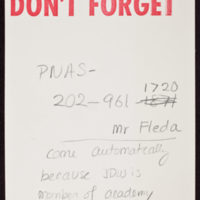 DON'T FORGET
PNAS-
1720
202-961
Mr Fleda
come automatically
because JDW is
member of academy